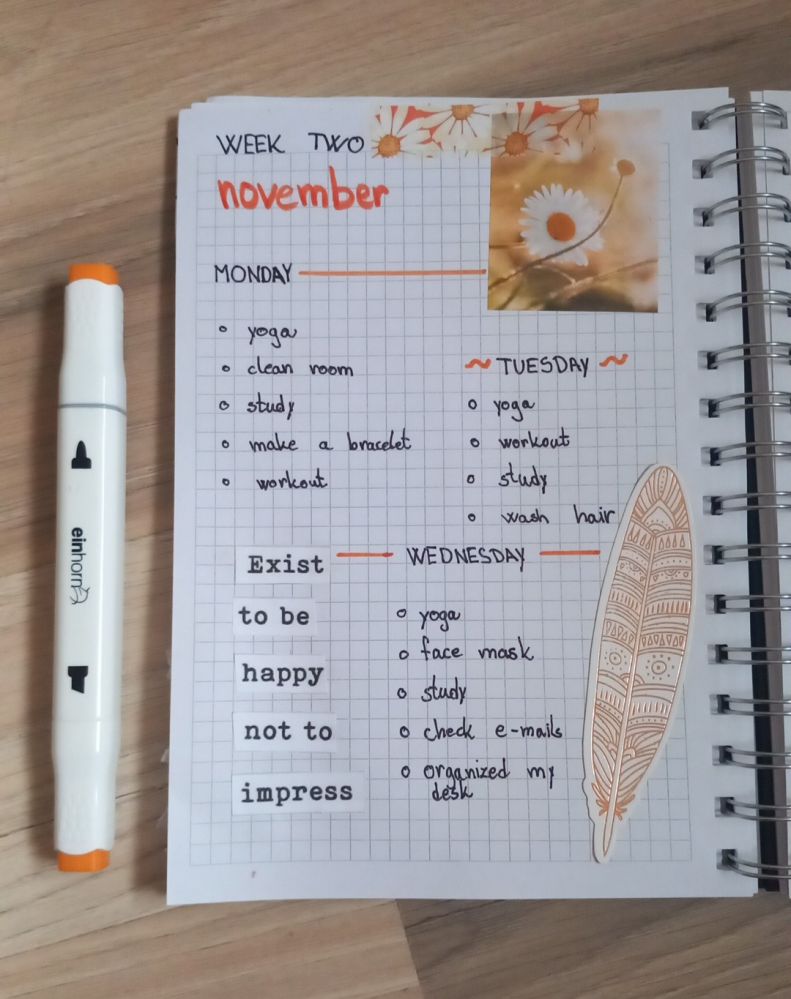 WEEK TWO
november
MONDAY
yoga
clean room
study
make a bracelet
workout
~ TUESDAY ~
yoga
workout
study
wash hair
WEDNESDAY
yoga
face mask
study
check e-mails
organized my
desk
Exist
to be
happy
not to
impress
einhorn